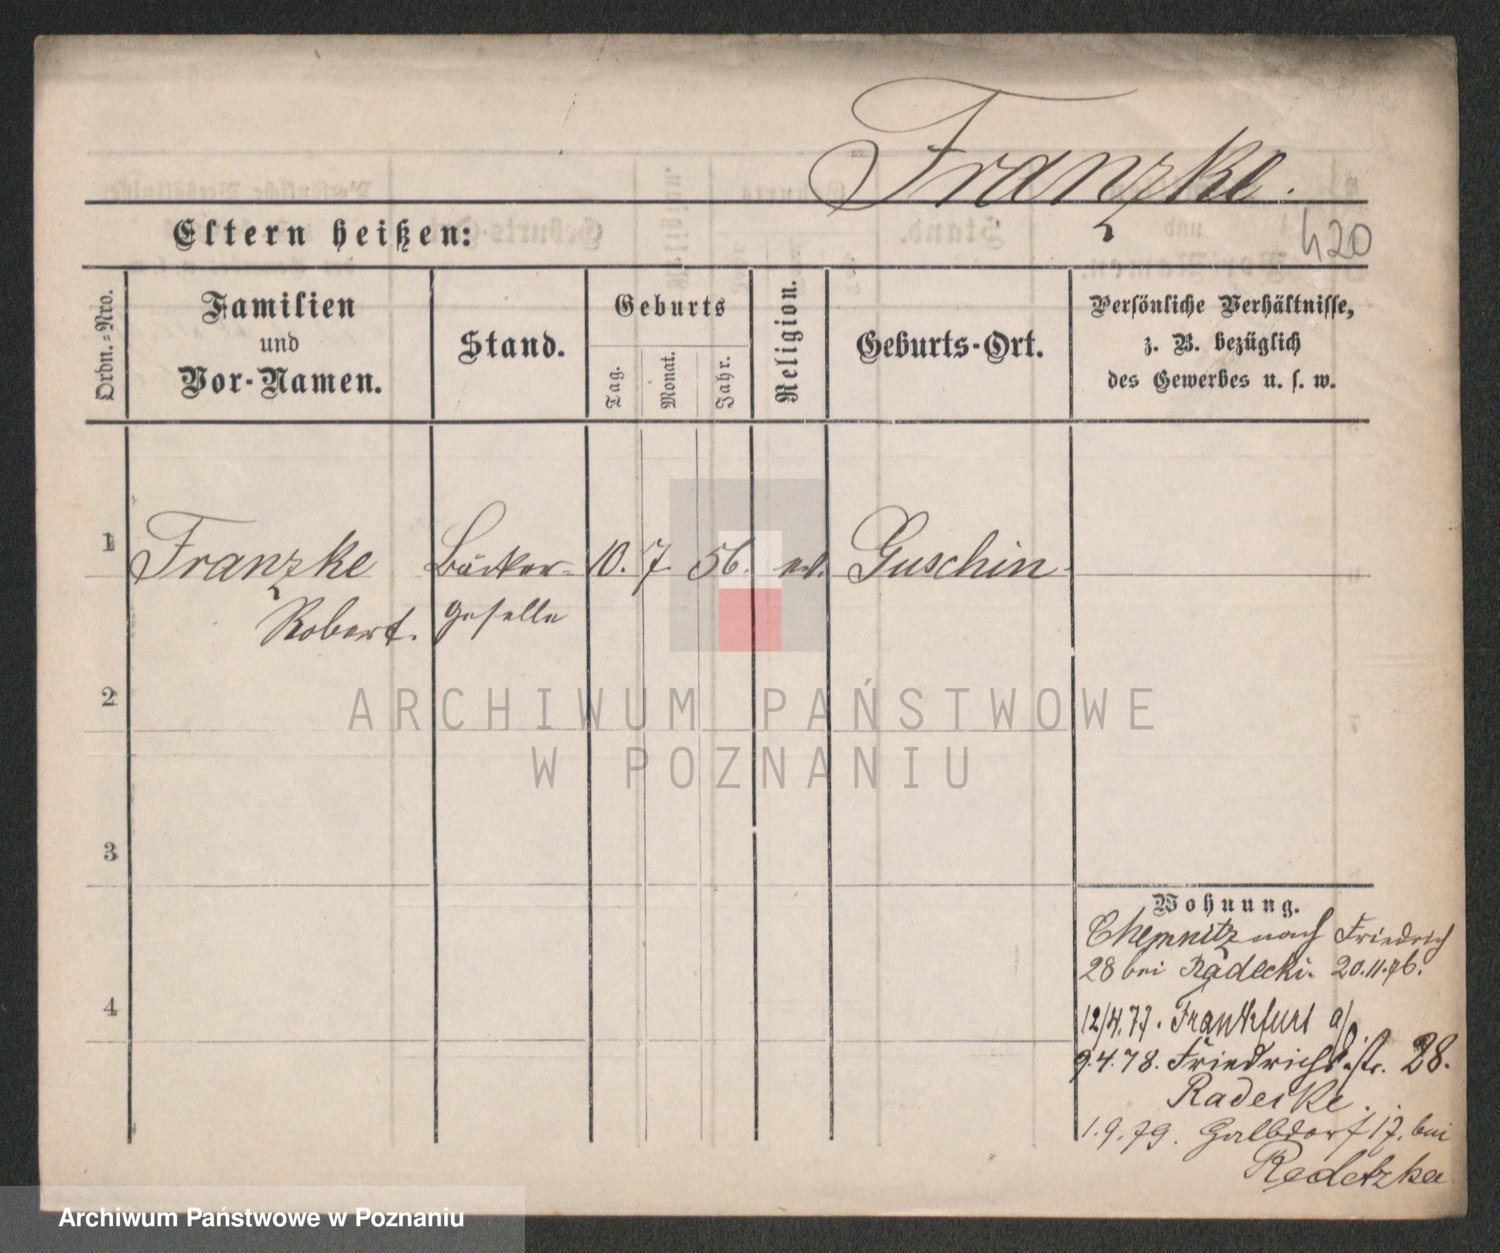 Franzke.
420
Eltern heißen:
Ordn.-Nro.
Familien
und
Vor-Namen.
Stand.
Geburts
Tag.
Monat.
Jahr.
Religion.
Geburts-Ort.
Persönliche Verhältnisse,
z. B. bezüglich
des Gewerbes u. s. w.
1 Franzke Bäcker- 10. 7. 56. ev. Guschin
Robert. geselle
2
3
4
Wohnung.
Chemnitz nach Friedrich
28 bei Radecki. 20.11.76.
12/4.77. Frankfurt a/O.
9.4.78. Friedrichstr. 28.
Radecke.
1.9.79. Halbdorf 17. bei
Redetzka
ARCHIWUM PAŃSTWOWE
W POZNANIU
Archiwum Państwowe w Poznaniu